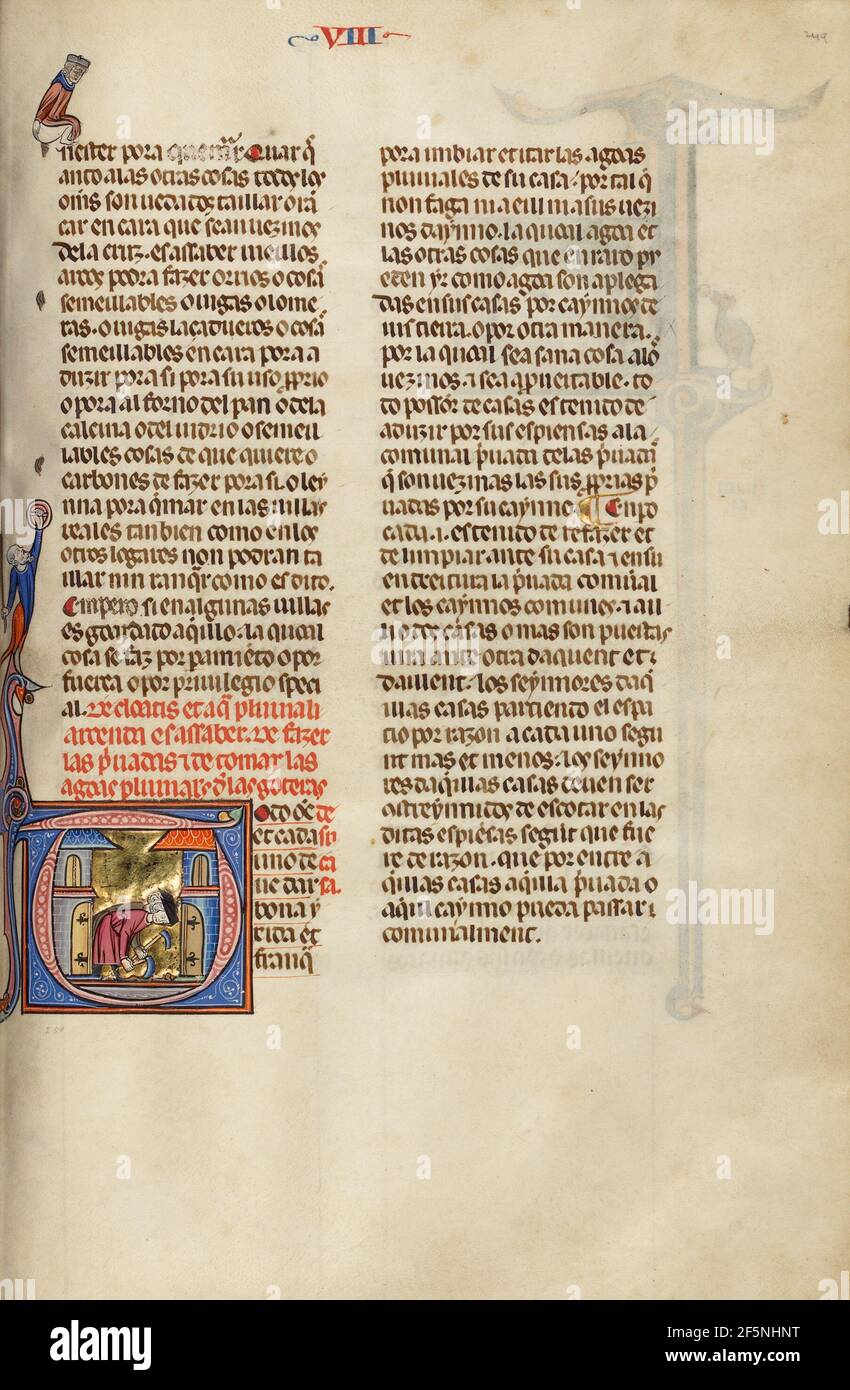 VIII
249
nester pora quemar Quar q̃
anto a las otras cosas todos los
oms son uedados taillar o ran
car en cara que sean uezinos
de la cruz. es assaber
podra fazer ornos o cosas
semeillables o uigas o lome
ras. o uigas lacaderos o cosas
semeillables en cara pora a
duzir pora si pora su uso p̃prio
o pora al forno del pan o de la
calcina o del uidrio o semeil
lables cosas de que quiere o
carbones de fazer pora si. o ley
nna pora q̃mar en las uillas
reales tan bien como en los
otros logares non podran ta
illar nin ranq̃r como es dito.
Empero si en algunas uillas
es goardado aq̃llo. la quoal
cosa se faz por pamiẽto o por
fuerca o por priuilegio speci
al. De cloacis et aq̃ pluuiali
arcenda es assaber. De fazer
las p̃uadas ⁊ de tomar las
agoas pluuiales ⁊ d̃ las goteras
Todo oẽ de
et cada su
uno de ca
ue dar sa.
bona y
et
franq̃
pora imbiar et itar las agoas
pluuiales de su casa. por tal q̃
non faga mal en masus uezi
nos daynno. la quoal agoa et
las otras cosas que en rato py
eden yr como agoa son aplega
das en sus casas por caynnos de
ius tierra. o por otra manera.
por la quoal sea sana cosa a los
uezinos ⁊ sea aprueitable. to
do possor de casas es tenido de
aduzir por sus espiensas a la
comunal p̃uada de las p̃uadas
q̃ son uezinas las sus p̃prias p̃
uadas por su caynno. Empo
cada .i. es tenido de refazer et
de limpiar ante su casa ⁊ en su
endreitura la p̃uada comũal
et los caynnos comunes. ⁊ all
do dos casas o mas son puestas
una ante otra daquent et ⁊
dailent. los seynnores daq̃
illas casas partiendo el espa
cio por razon a cada uno segu
nt mas et menos. los seynno
res daq̃illas casas deuen ser
costreynnidos de escotar en las
ditas espiẽsas segũt que fue
re de razon. que por entre a
q̃illas casas aq̃illa p̃uada o
aq̃il caynno pueda passar ⁊
comunalment.
250
alamy
Image ID: 2F5NHNT
www.alamy.com